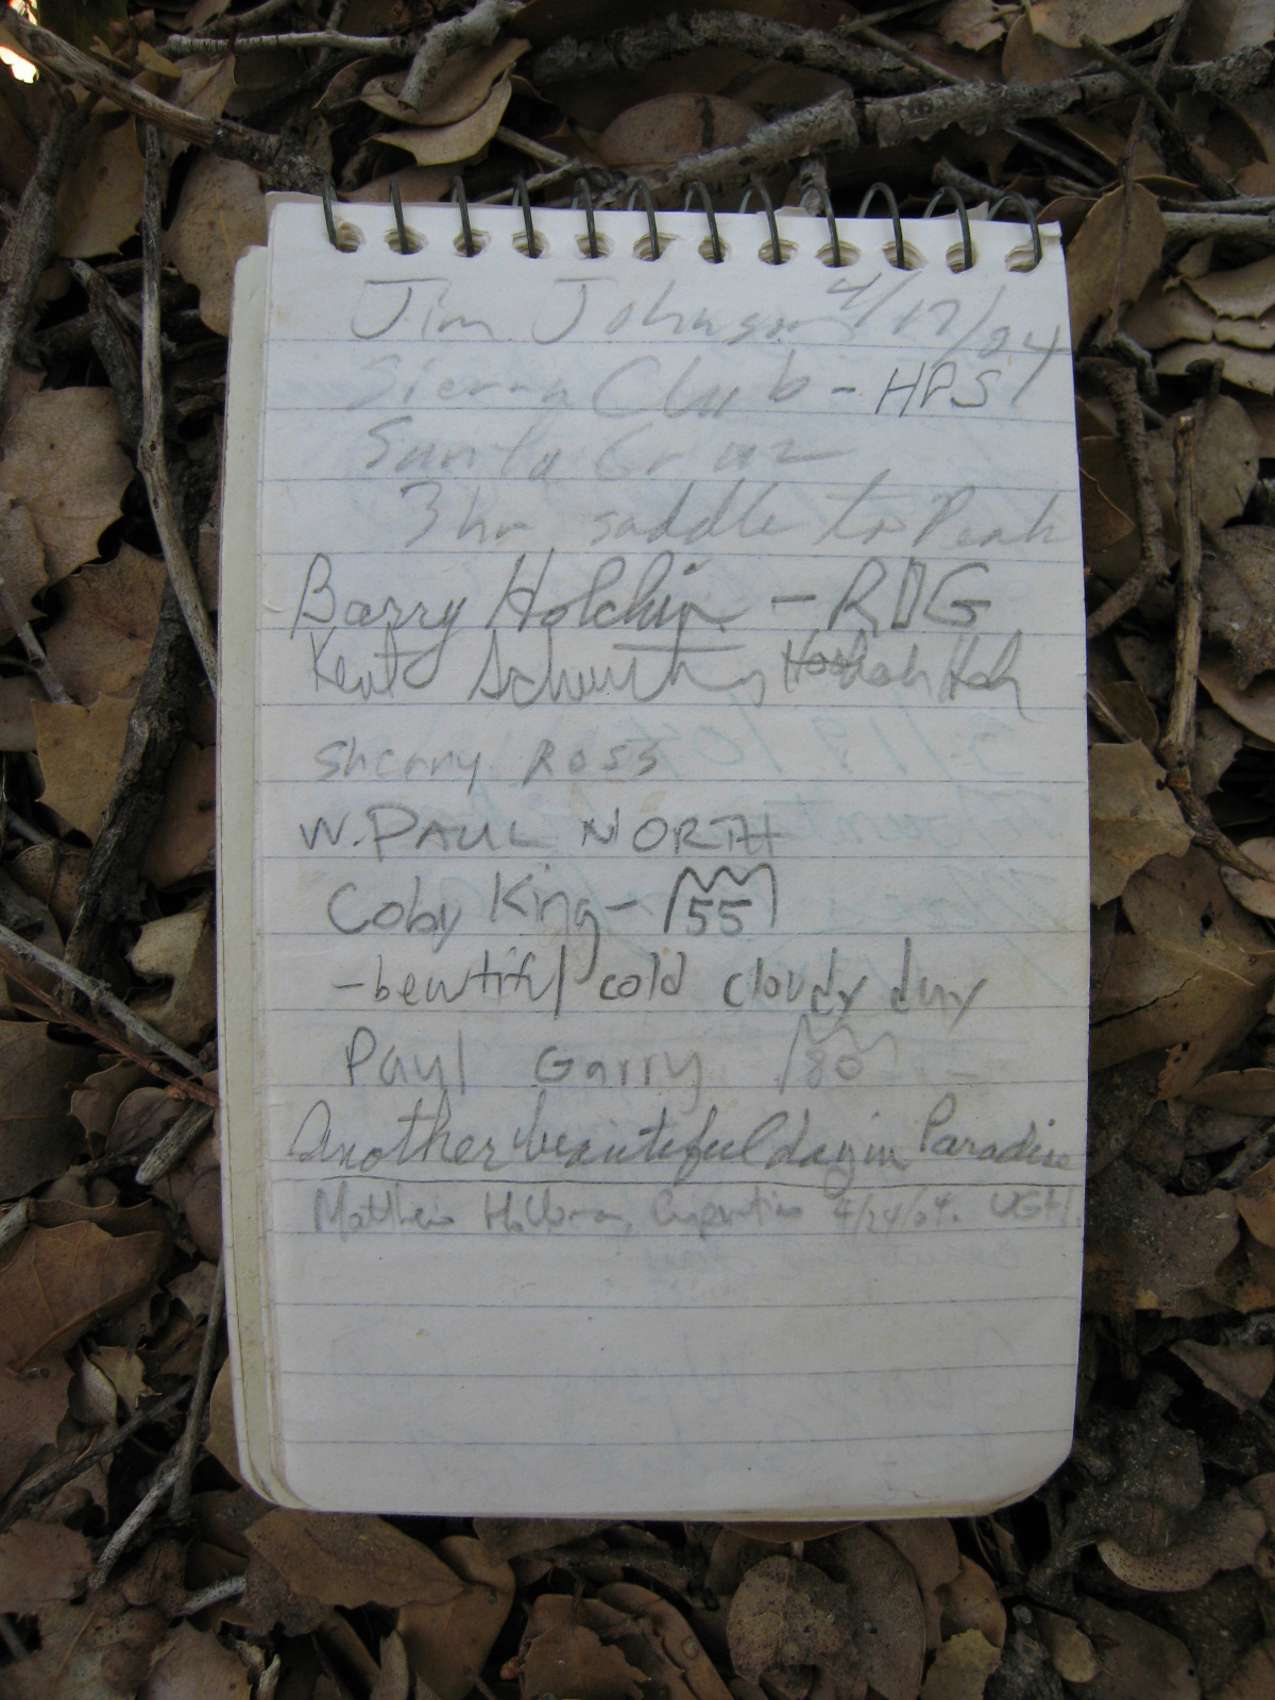 Jim Johnson 4/17/04
Sierra Club - HPS
Santa Cruz
3 hr saddle to Peak
Barry Holchin -
Kent Hah
Sherry Ross
W. PAUL NORTH
Coby King - 55
- beautiful cold cloudy day
Paul Garry 80
Another beautiful day in Paradise
Matthew Hollman, Cupertino 4/24/04. UGH!